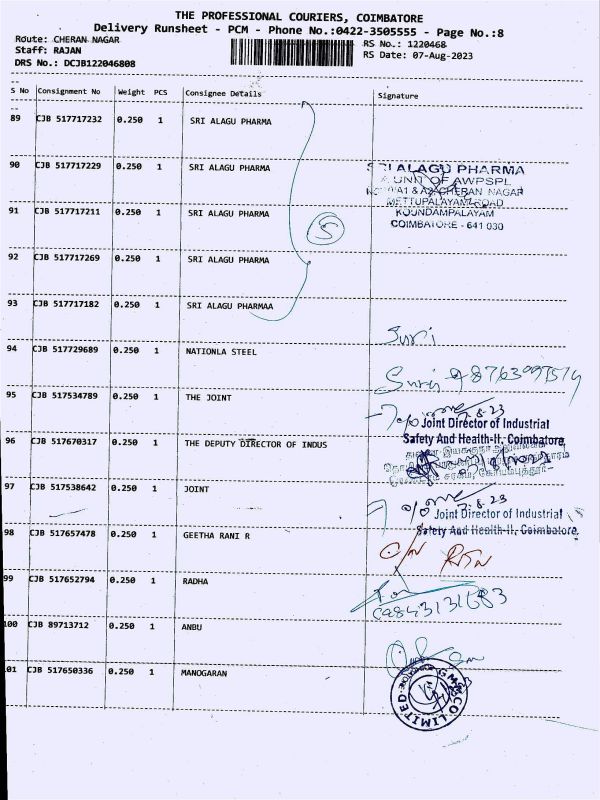 THE PROFESSIONAL COURIERS, COIMBATORE
Delivery Runsheet - PCM - Phone No.:0422-3505555 - Page No.:8
Route: CHERAN NAGAR
RS No.: 1220468
Staff: RAJAN
RS Date: 07-Aug-2023
DRS No.: DCJB122046808
S No Consignment No Weight PCS Consignee Details Signature
89 CJB 517717232 0.250 1 SRI ALAGU PHARMA
90 CJB 517717229 0.250 1 SRI ALAGU PHARMA
SRI ALAGU PHARMA
A UNIT OF AWPSPL
CHERAN NAGAR
METTUPALAYAM ROAD
91 CJB 517717211 0.250 1 SRI ALAGU PHARMA
KOUNDAMPALAYAM
COIMBATORE - 641 030
5
92 CJB 517717269 0.250 1 SRI ALAGU PHARMA
93 CJB 517717182 0.250 1 SRI ALAGU PHARMAA
Suri
94 CJB 517729689 0.250 1 NATIONLA STEEL
95 CJB 517534789 0.250 1 THE JOINT
7.8.23
Joint Director of Industrial
Safety And Health-II, Coimbatore
96 CJB 517670317 0.250 1 THE DEPUTY DIRECTOR OF INDUS
97 CJB 517538642 0.250 1 JOINT
7.8.23
Joint Director of Industrial
Safety And Health-II, Coimbatore.
98 CJB 517657478 0.250 1 GEETHA RANI R
99 CJB 517652794 0.250 1 RADHA
100 CJB 89713712 0.250 1 ANBU
101 CJB 517650336 0.250 1 MANOGARAN
CO LIMITED